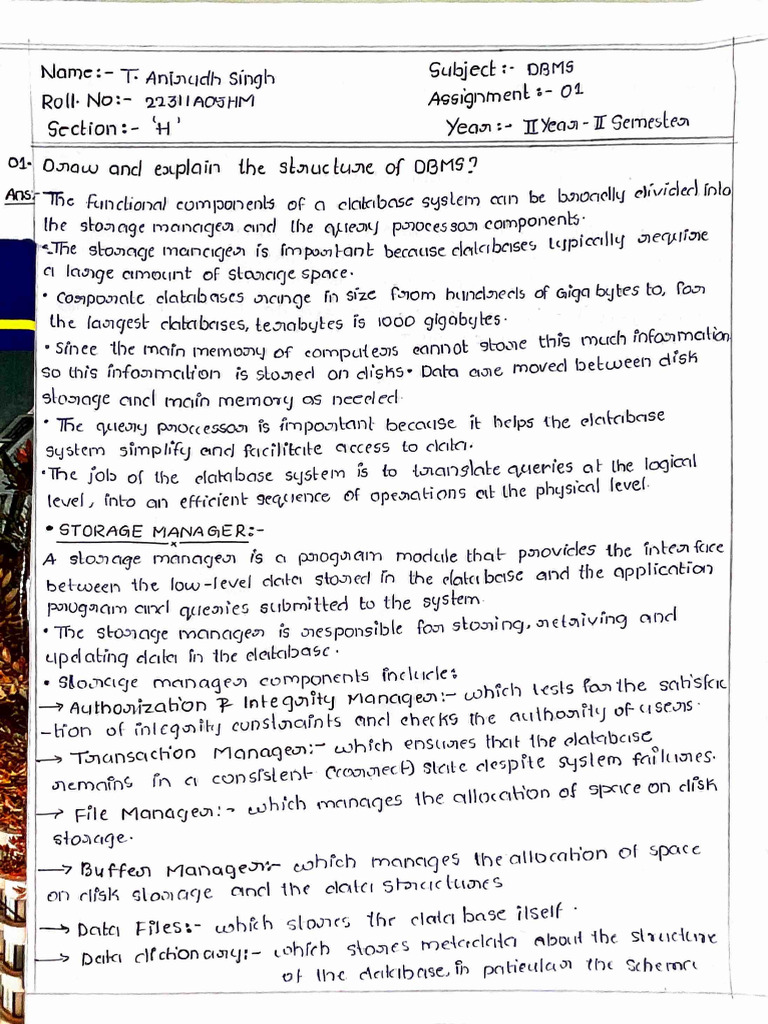 Name:- T. Anirudh Singh
Subject:- DBMS
Roll. No:- 22311A05HM
Assignment:- 01
Section:- 'H'
Year:- II Year - II Semester
01- Draw and explain the structure of DBMS?
Ans:- The functional components of a database system can be broadly divided into
the storage manager and the query processor components.
• The storage manager is important because databases typically require
a large amount of storage space.
• Corporate databases range in size from hundreds of Giga bytes to, for
the largest databases, terabytes is 1000 gigabytes.
• Since the main memory of computers cannot store this much information
so this information is stored on disks. Data are moved between disk
storage and main memory as needed.
• The query processor is important because it helps the database
system simplify and facilitate access to data.
• The job of the database system is to translate queries at the logical
level, into an efficient sequence of operations at the physical level.
• STORAGE MANAGER:-
A storage manager is a program module that provides the interface
between the low-level data stored in the database and the application
program and queries submitted to the system.
• The storage manager is responsible for storing, retriving and
updating data in the database.
• Storage manager components include:
→ Authorization & Integrity Manager:- which tests for the satisfac
-tion of integrity constraints and checks the authority of users.
→ Transaction Manager:- which ensures that the database
remains in a consistent (correct) state despite system failures.
→ File Manager:- which manages the allocation of space on disk
storage.
→ Buffer Manager:- which manages the allocation of space
on disk storage and the data structures
→ Data Files:- which stores the data base itself.
→ Data dictionary:- which stores metadata about the structure
of the database, in paticular the schema